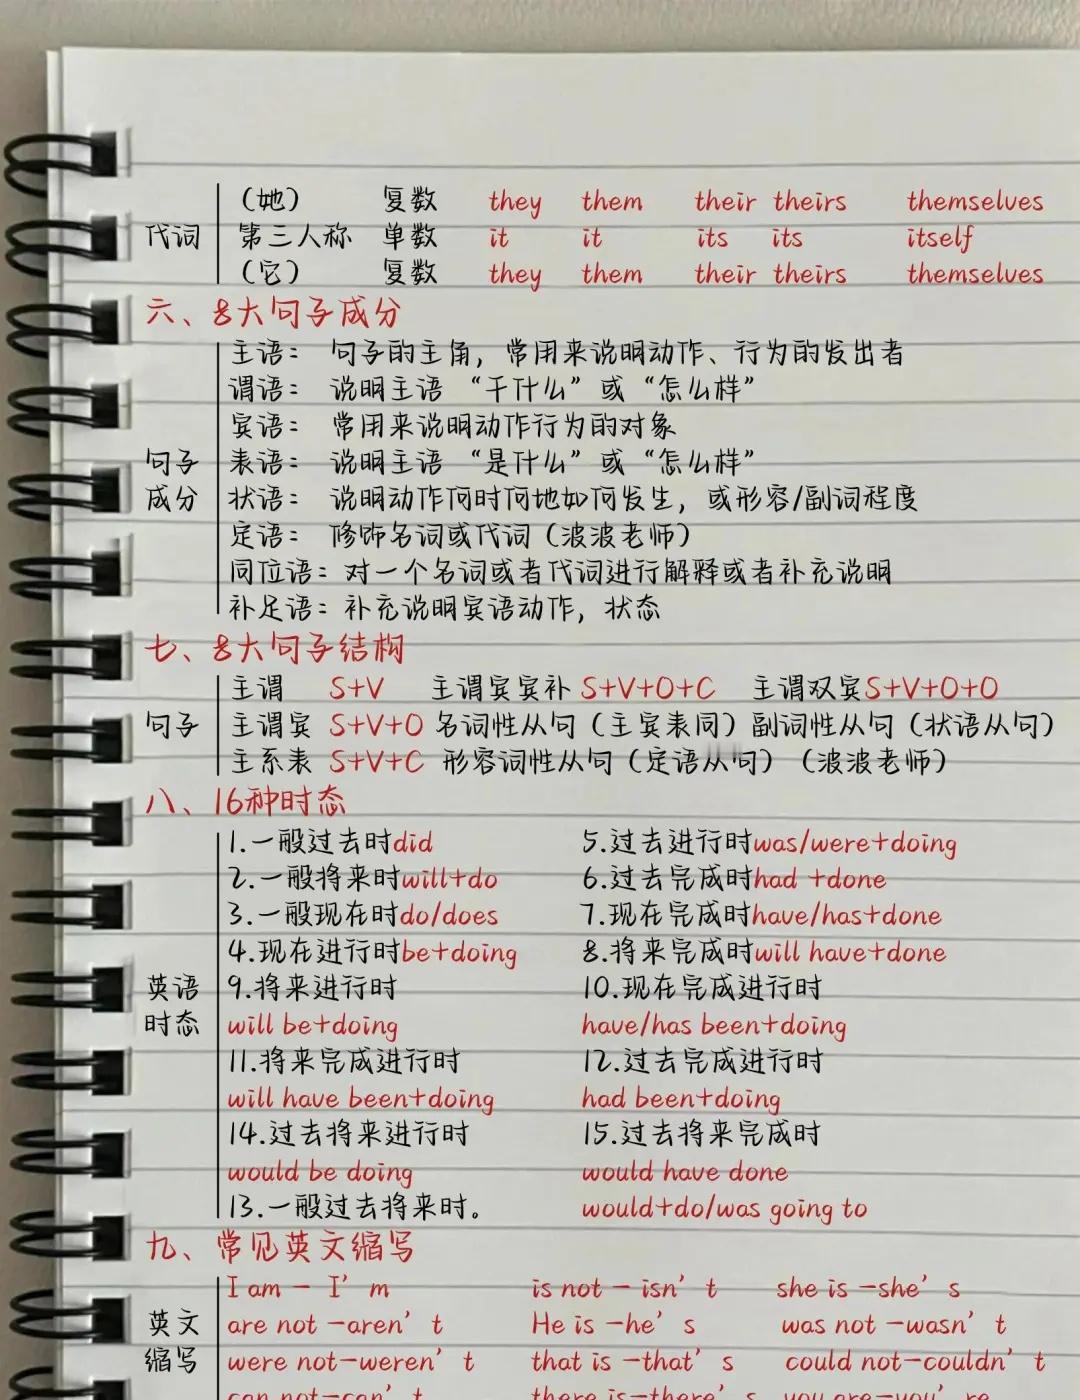 (她) 复数 they them their theirs themselves
代词 第三人称 单数 it it its its itself
(它) 复数 they them their theirs themselves
六、8大句子成分
主语： 句子的主角，常用来说明动作、行为的发出者
谓语： 说明主语“干什么”或“怎么样”
宾语： 常用来说明动作行为的对象
句子 表语： 说明主语“是什么”或“怎么样”
成分 状语： 说明动作何时何地如何发生，或形容/副词程度
定语： 修饰名词或代词(波波老师)
同位语：对一个名词或者代词进行解释或者补充说明
补足语：补充说明宾语动作，状态
七、8大句子结构
主谓 S+V 主谓宾宾补 S+V+O+C 主谓双宾S+V+O+O
句子 主谓宾 S+V+O 名词性从句(主宾表同)副词性从句(状语从句)
主系表 S+V+C 形容词性从句(定语从句)(波波老师)
八、16种时态
1.一般过去时did 5.过去进行时was/were+doing
2.一般将来时will+do 6.过去完成时had +done
3.一般现在时do/does 7.现在完成时have/has+done
4.现在进行时be+doing 8.将来完成时will have+done
英语 9.将来进行时 10.现在完成进行时
时态 will be+doing have/has been+doing
11.将来完成进行时 12.过去完成进行时
will have been+doing had been+doing
14.过去将来进行时 15.过去将来完成时
would be doing would have done
13.一般过去将来时。 would+do/was going to
九、常见英文缩写
I am — I'm is not — isn't she is —she's
英文 are not —aren't He is —he's was not —wasn't
缩写 were not—weren't that is —that's could not—couldn't
can not—can't there is—there's you are—you're